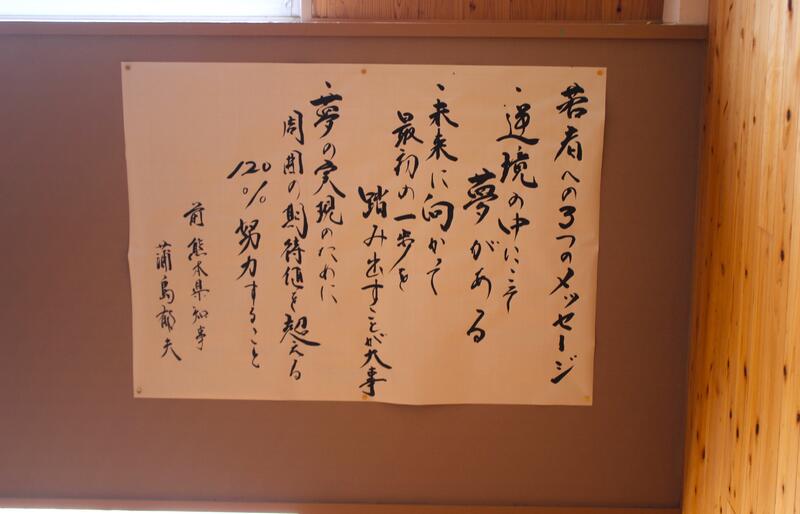 若者への3つのメッセージ
・逆境の中にこそ
夢がある
・未来に向かって
最初の一歩を
踏み出すことが大事
・夢の実現のために
周囲の期待値を超える
120%努力すること
前熊本県知事
蒲島郁夫